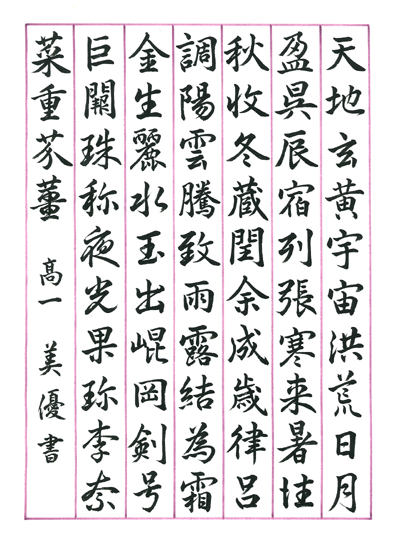 天地玄黄宇宙洪荒日月
盈昃辰宿列張寒来暑往
秋收冬蔵閏余成歳律呂
調陽雲騰致雨露結為霜
金生麗水玉出崐岡剣号
巨闕珠称夜光果珎李奈
菜重芥薑 高一 美優書